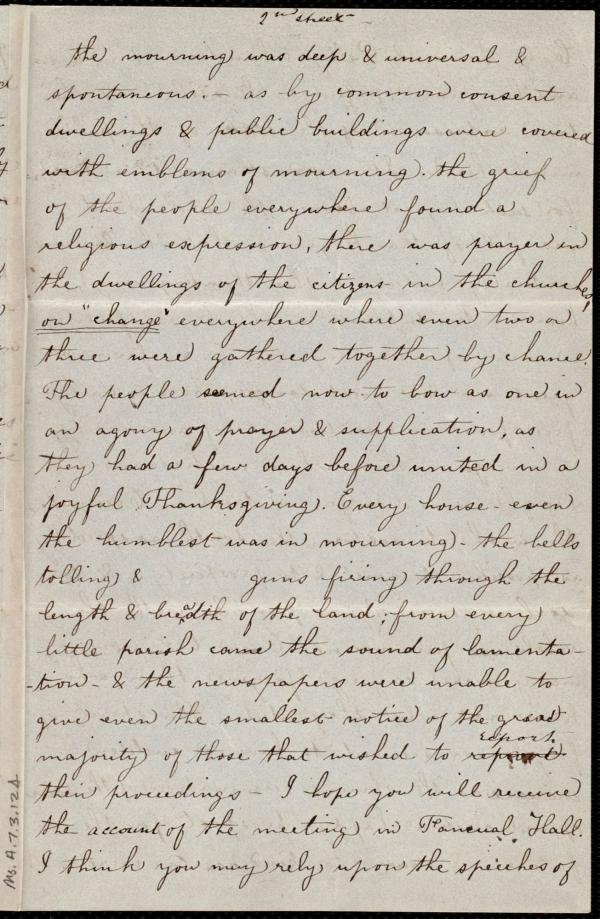 2nd sheet
the mourning was deep & universal &
spontaneous. - as by common consent
dwellings & public buildings were covered
with emblems of mourning. the grief
of the people everywhere found a
religious expression, there was prayer in
the dwellings of the citizens in the churches,
on "change" everywhere where even two or
three were gathered together by chance.
The people seemed now to bow as one in
an agony of prayer & supplication, as
they had a few days before united in a
joyful Thanksgiving. Every house - even
the humblest was in mourning - the bells
tolling & guns firing through the
length & breadth of the land; from every
little parish came the sound of lamenta-
-tion - & the newspapers were unable to
give even the smallest notice of the great
report
majority of those that wished to
their proceedings - I hope you will receive
the account of the meeting in Faneual Hall.
I think you may rely upon the speeches of
Ms. A.7.3.124